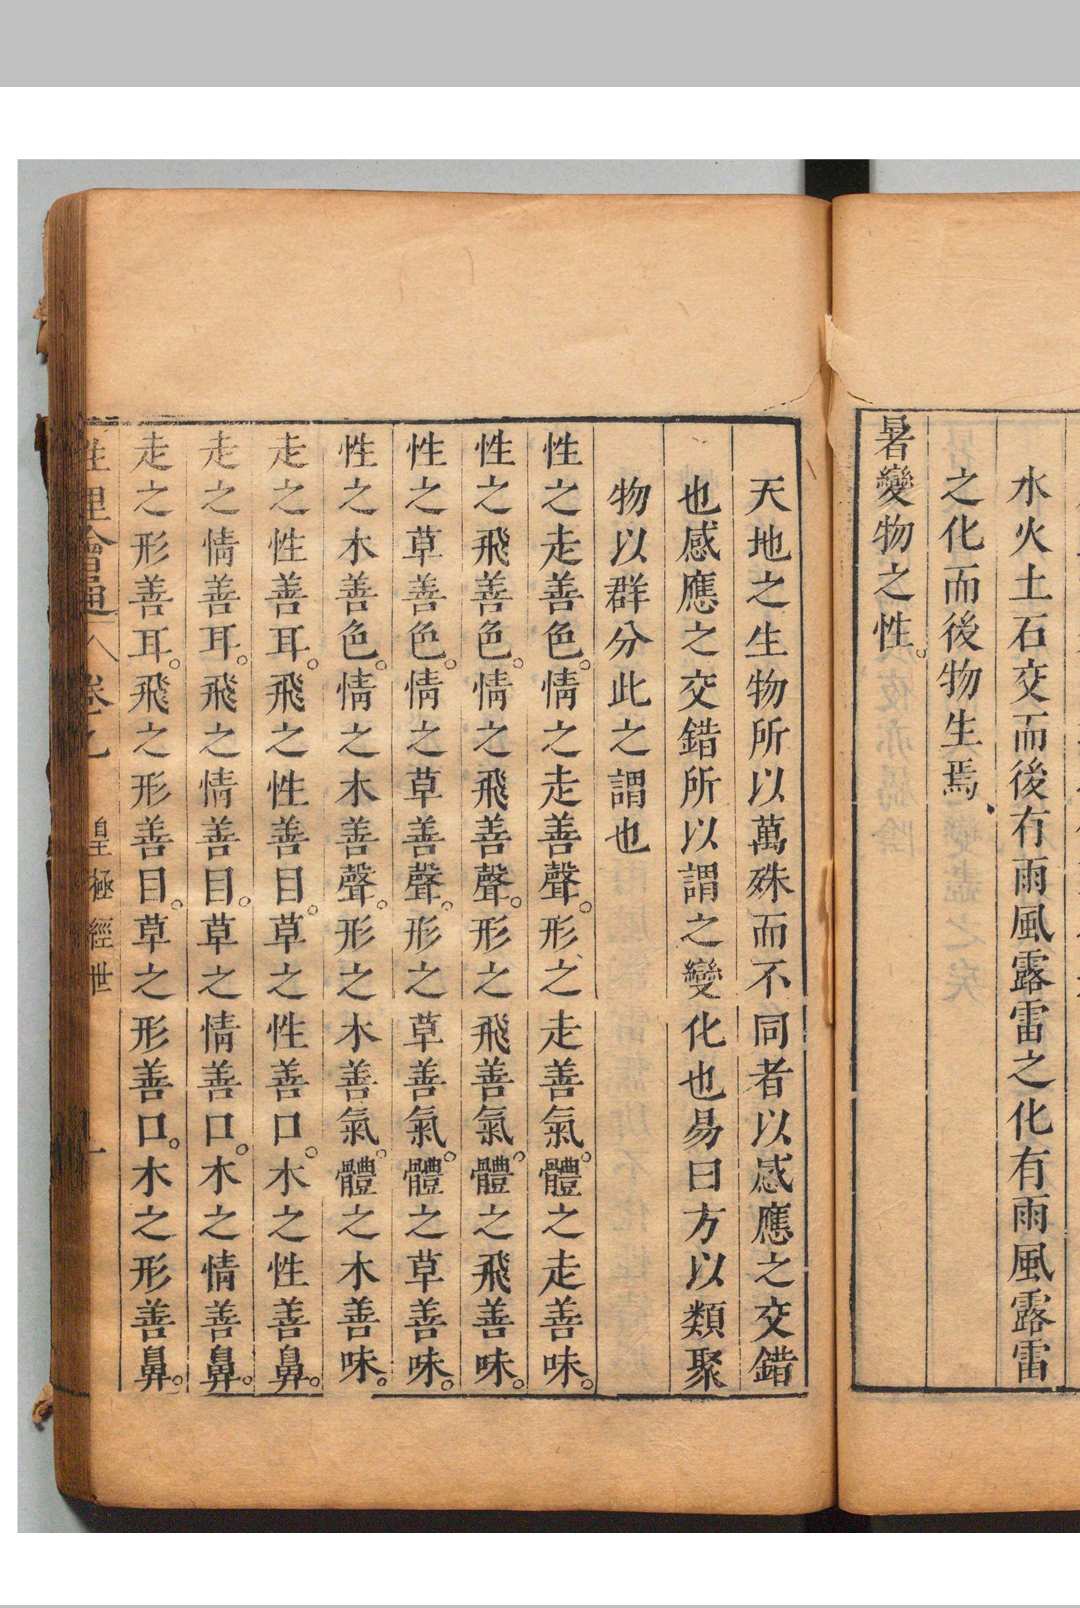 水火土石交而後有雨風露雷之化有雨風露雷
之化而後物生焉
暑變物之性。
天地之生物所以萬殊而不同者以感應之交錯
也感應之交錯所以謂之變化也易曰方以類聚
物以群分此之謂也
性之走善色。情之走善聲。形之走善氣。體之走善味。
性之飛善色。情之飛善聲。形之飛善氣。體之飛善味。
性之草善色。情之草善聲。形之草善氣。體之草善味。
性之木善色。情之木善聲。形之木善氣。體之木善味。
走之性善耳。飛之性善目。草之性善口。木之性善鼻。
走之情善耳。飛之情善目。草之情善口。木之情善鼻。
走之形善耳。飛之形善目。草之形善口。木之形善鼻。
性理會通 卷之 皇極經世